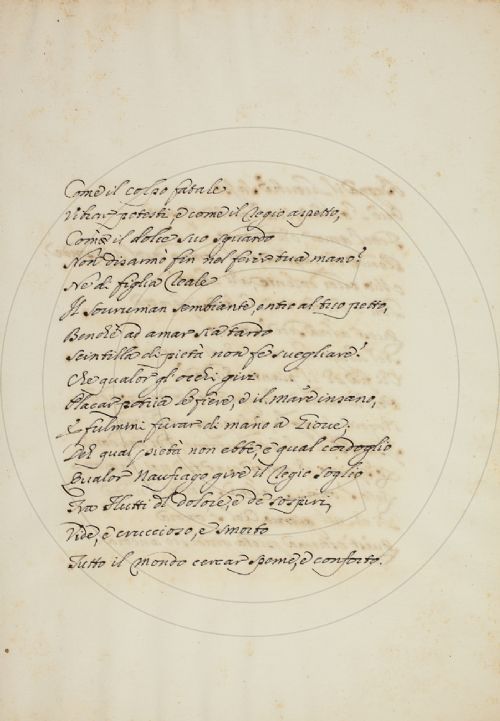 Come il colpo fatale
Vibrar potesti, e come il Regio aspetto,
Come il dolce suo sguardo
Non disarmò fin nel ferir tua mano?
Ne di figlia Reale
Il sovruman sembiante, entro al tuo petto,
Benche ad amar sia tardo
Scintilla di pietà non fe svegliare?
Che qualor gl'occhi giri
Placar potria le fiere, e il mare insano,
E fulmini furar di mano a Giove.
Deh qual pietà non ebbe, e qual cordoglio
Qualor Naufrago gire il Regio soglio
Tra flutti di dolore, e de sospiri,
Vide, e cruccioso, e smorto
Tutto il Mondo cercar speme, e conforto.